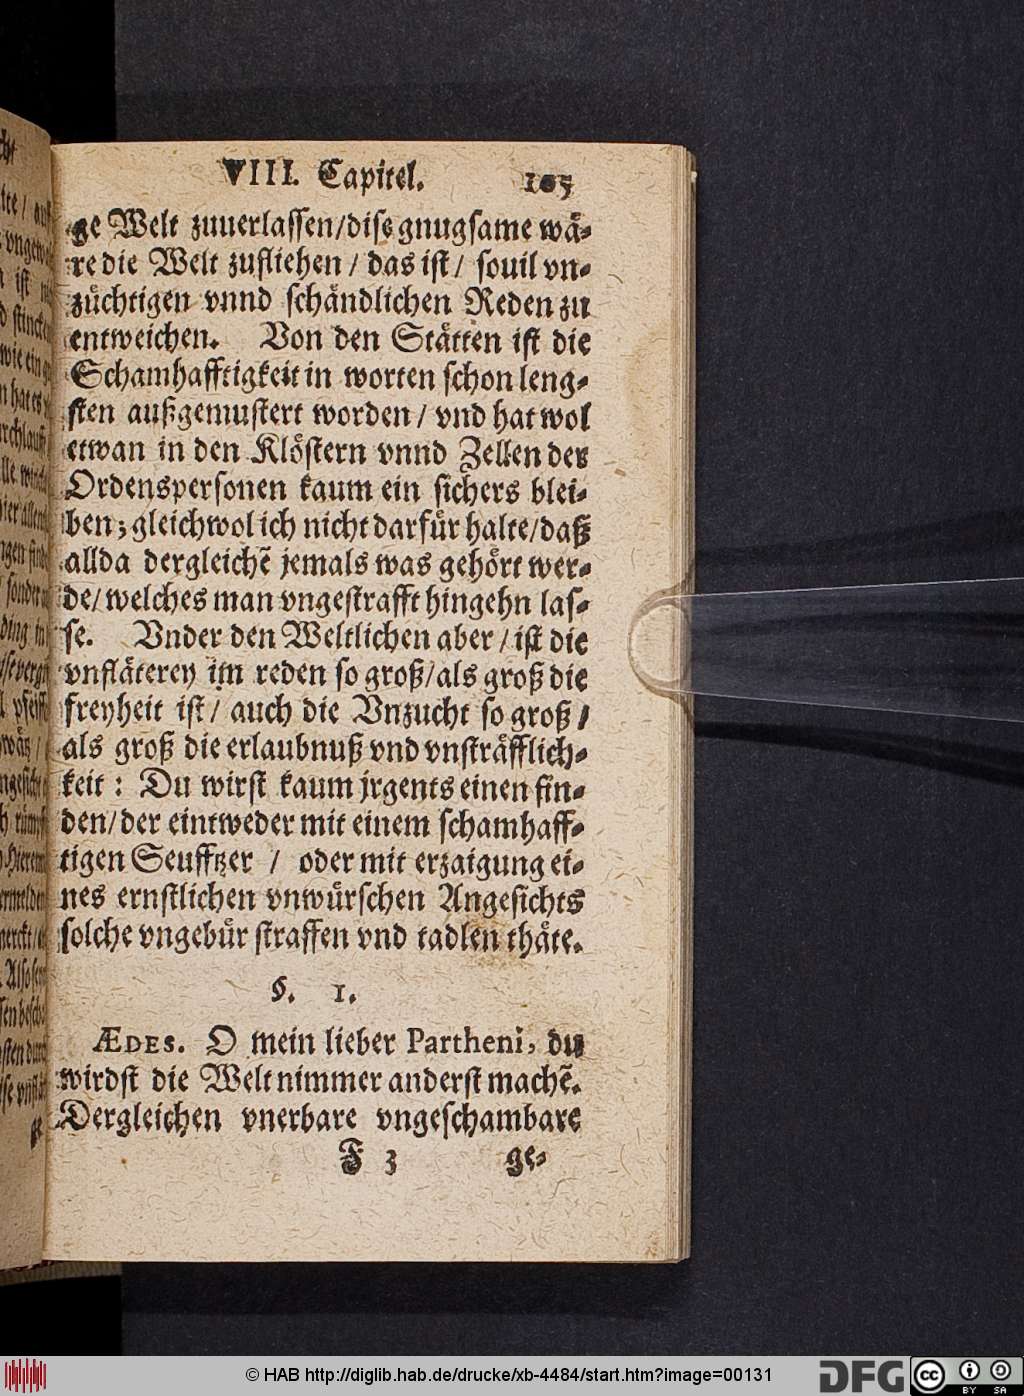 VIII. Capitel. 105
ge Welt zuuerlassen/dise gnugsame wä-
re die Welt zufliehen / das ist / souil vn-
züchtigen vnnd schändlichen Reden zu
entweichen. Von den Stätten ist die
Schamhafftigkeit in worten schon leng-
sten außgemustert worden / vnd hat wol
etwan in den Klöstern vnnd Zellen der
Ordenspersonen kaum ein sichers blei-
ben; gleichwol ich nicht darfür halte/daß
allda dergleichẽ jemals was gehört wer-
de/ welches man vngestrafft hingehn las-
se. Vnder den Weltlichen aber / ist die
vnfläterey im reden so groß/als groß die
freyheit ist / auch die Vnzucht so groß /
als groß die erlaubnuß vnd vnsträfflich-
keit : Du wirst kaum jrgents einen fin-
den/der eintweder mit einem schamhaff-
tigen Seufftzer / oder mit erzaigung ei-
nes ernstlichen vnwürschen Angesichts
solche vngebür straffen vnd tadlen thäte.
§. 1.
ÆDES. O mein lieber Partheni, du
wirdst die Welt nimmer anderst machẽ.
Dergleichen vnerbare vngeschambare
F 3 ge-
© HAB http://diglib.hab.de/drucke/xb-4484/start.htm?image=00131
DFG
cc BY SA